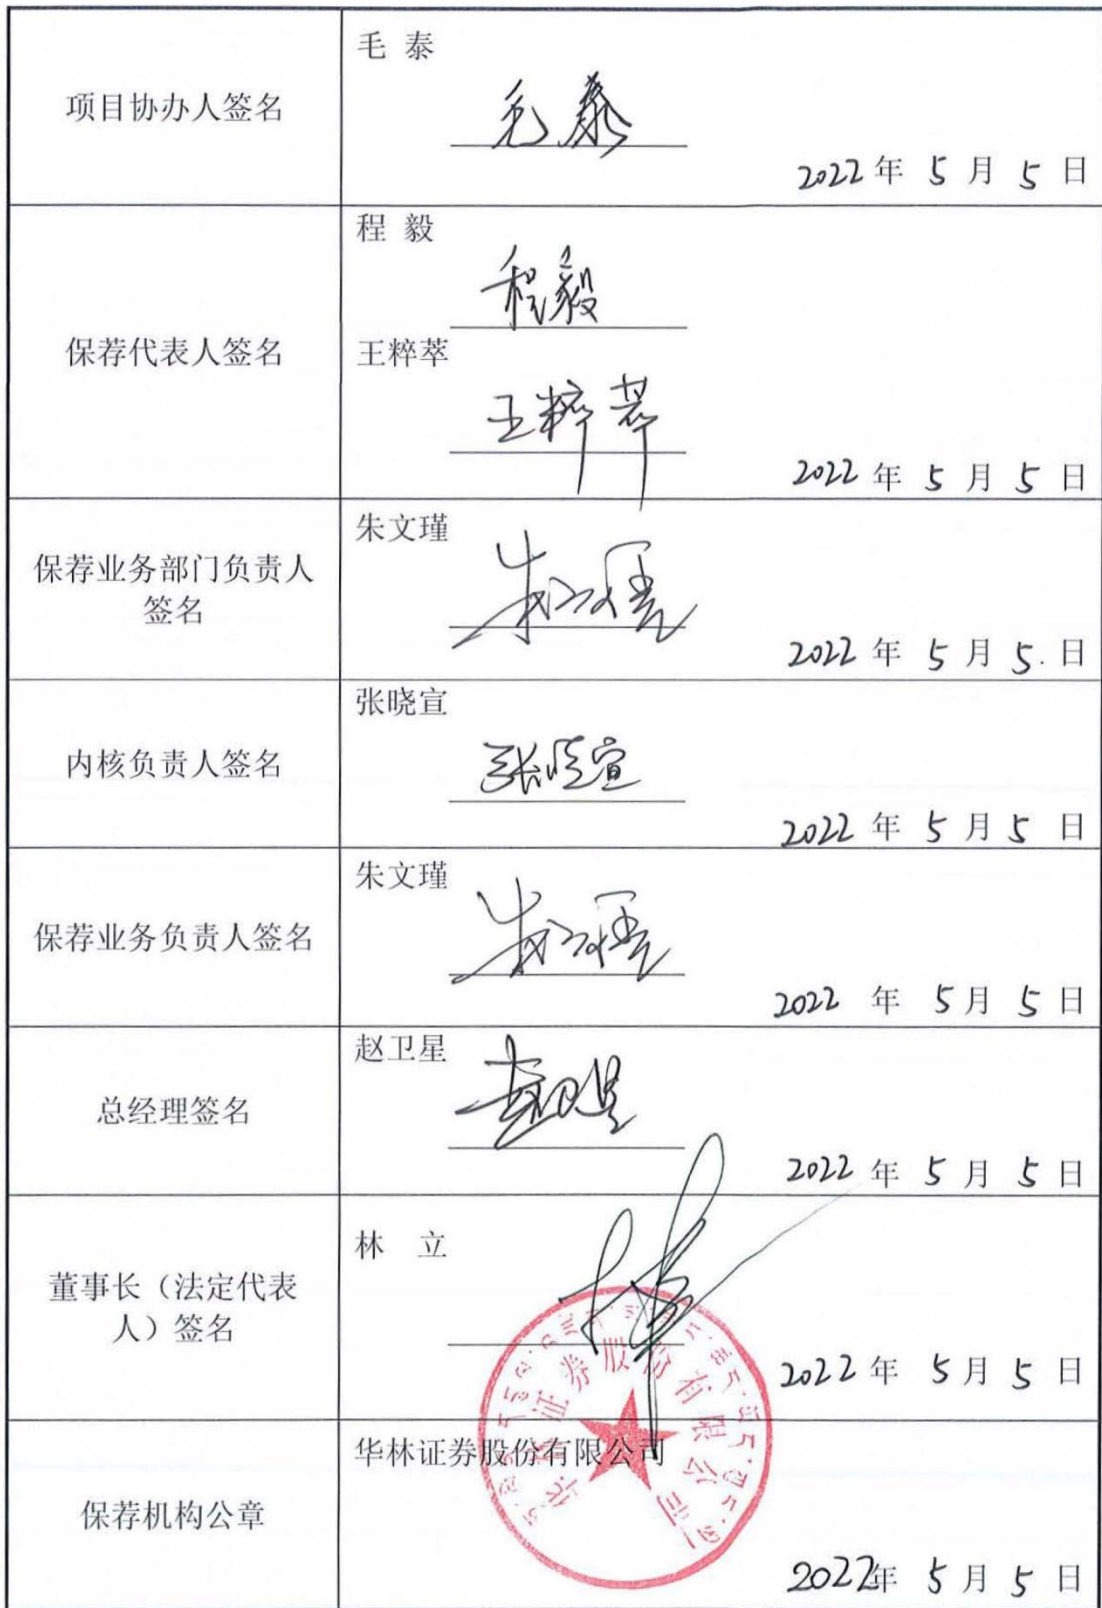 项目协办人签名
毛 泰
毛泰
2022年 5 月 5 日
保荐代表人签名
程 毅
程毅
王粹萃
王粹萃
2022 年 5 月 5 日
保荐业务部门负责人
签名
朱文瑾
朱文瑾
2022 年 5 月 5. 日
内核负责人签名
张晓宣
张晓宣
2022 年 5 月 5 日
保荐业务负责人签名
朱文瑾
朱文瑾
2022 年 5 月 5 日
总经理签名
赵卫星
赵卫星
2022 年 5 月 5 日
董事长（法定代表
人）签名
林 立
2022 年 5 月 5 日
保荐机构公章
华林证券股份有限公司
华林证券股份有限公司
2022年 5 月 5 日